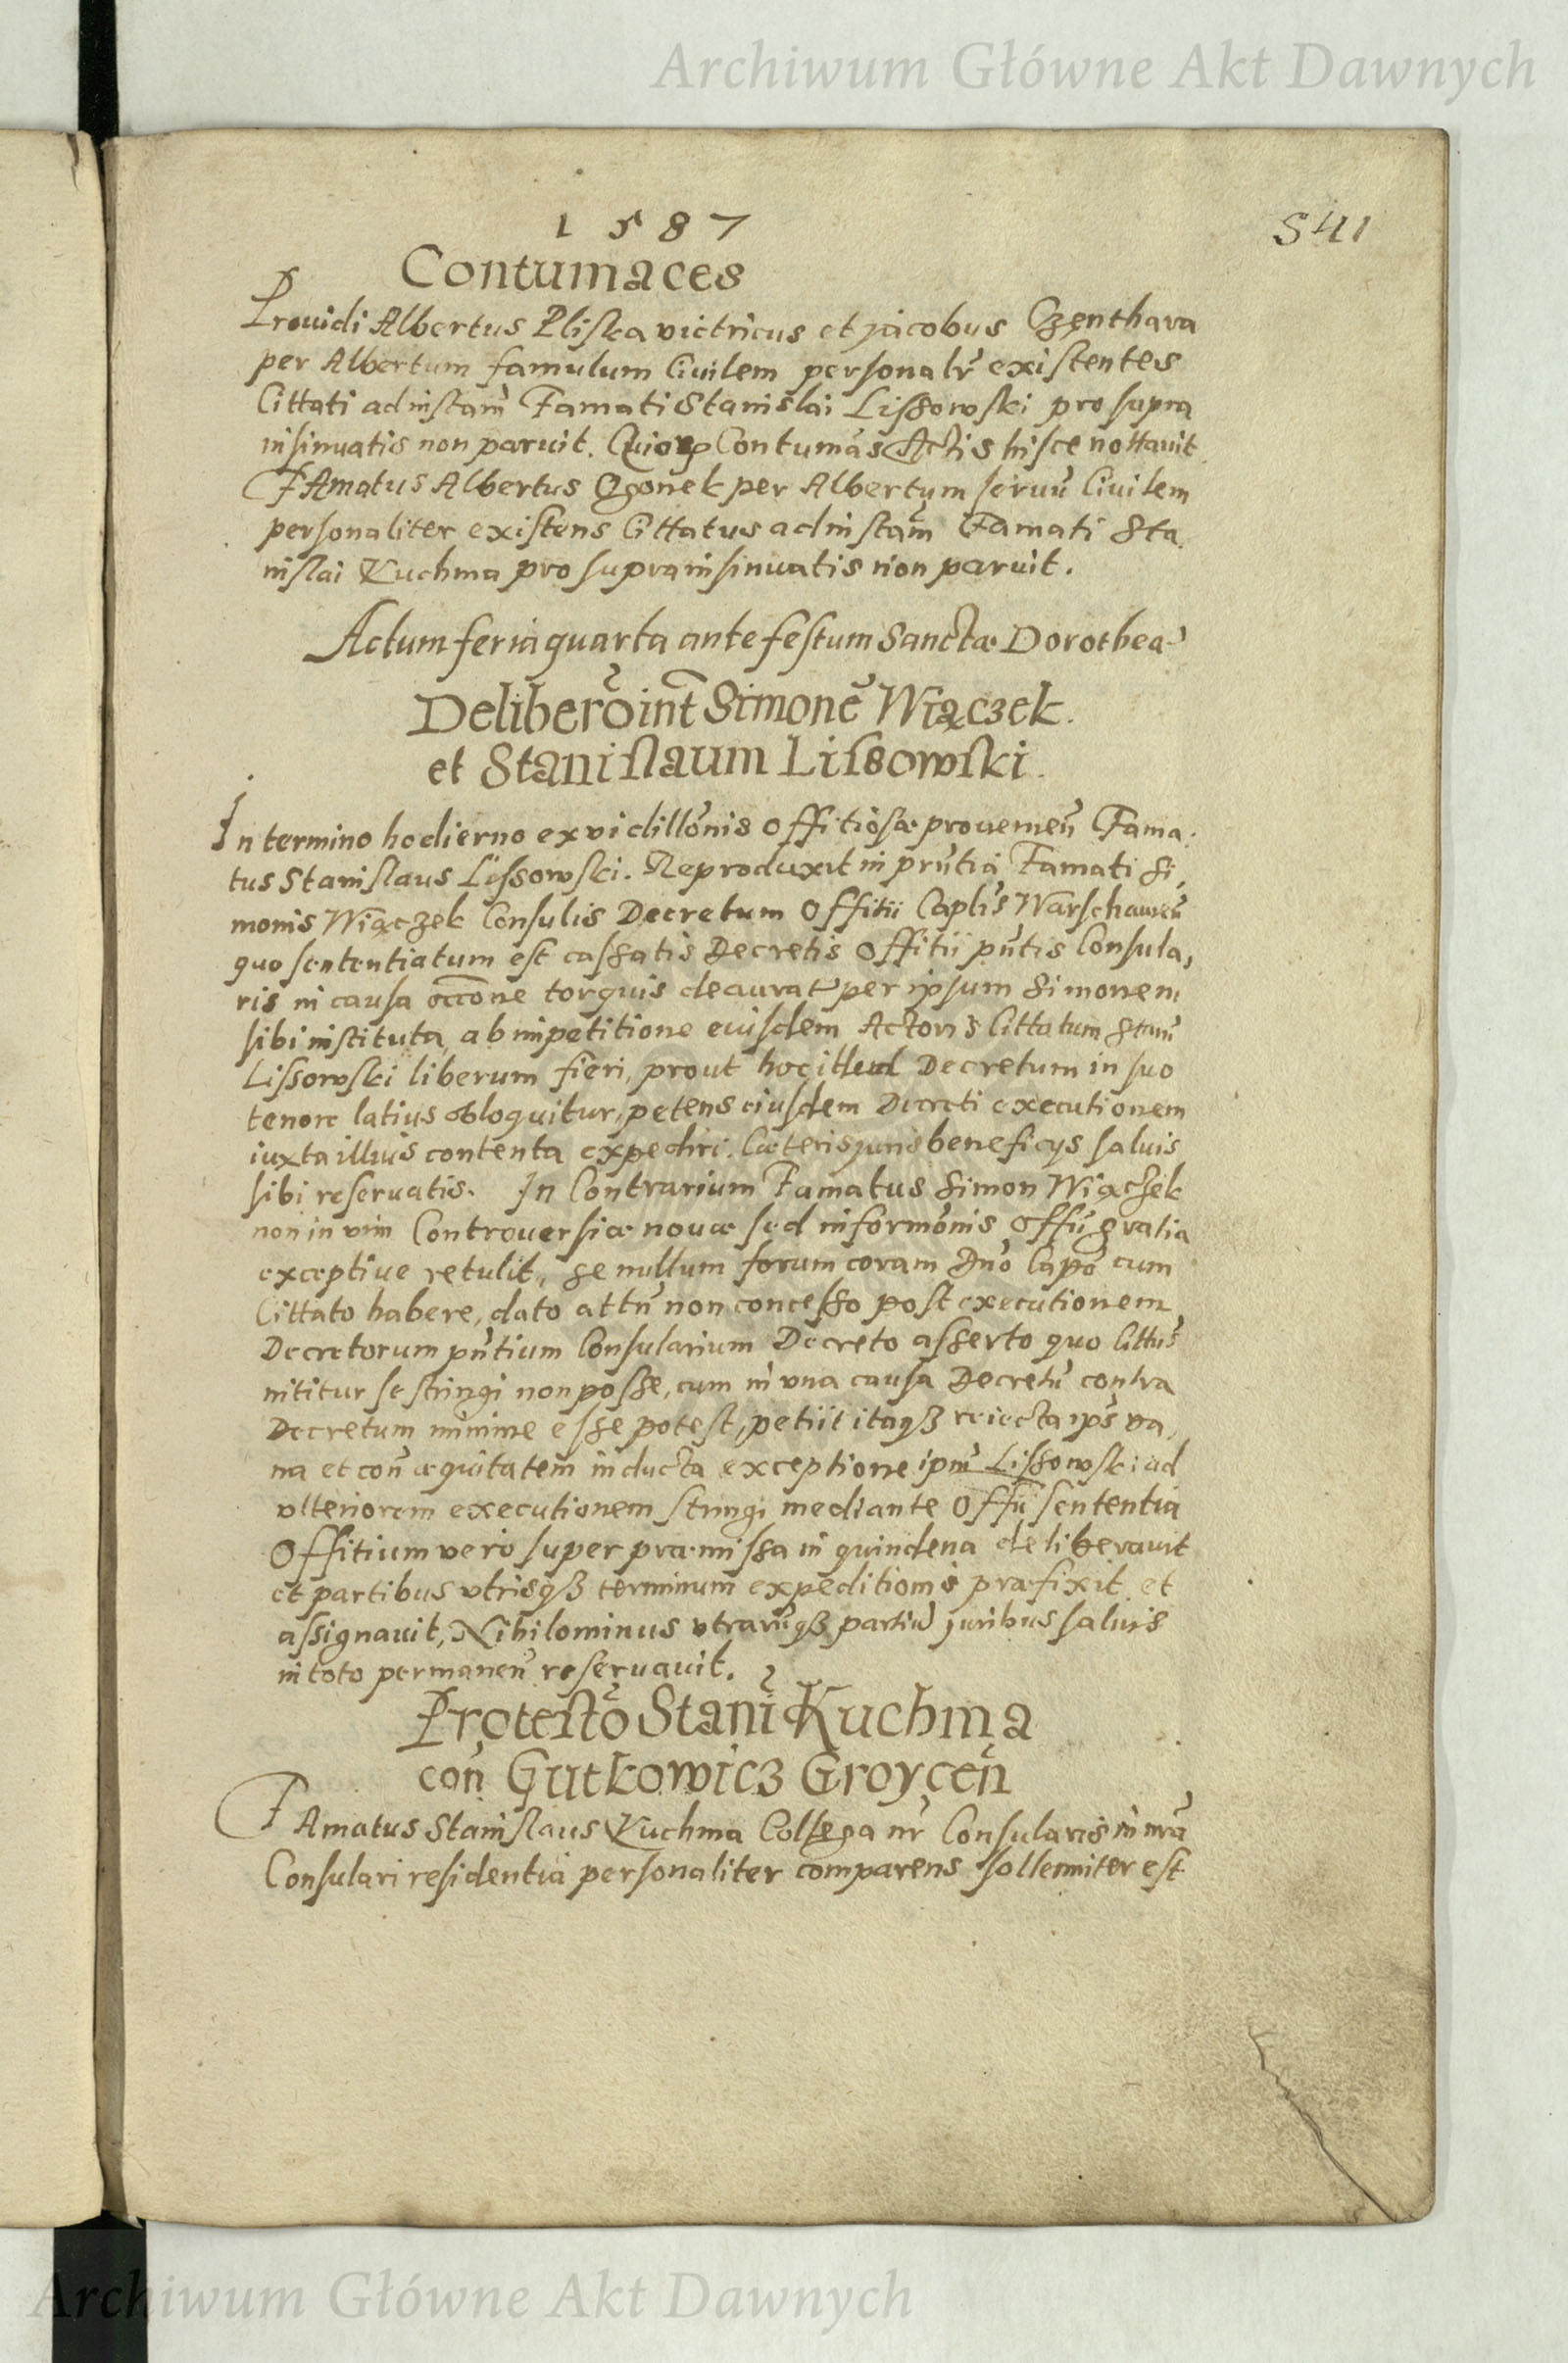 Archiwum Główne Akt Dawnych
1587
541
Contumaces
Prouidi Albertus Pliska victricus et jacobus Czenthara
per Albertum famulum Ciuilem personalr̃ existentes
Cittati ad instam̃ Famati Stanislai Lissowski pro supra
insinuatis non paruit. Contumãs Actis hisce nottauit
FAmatus Albertus Ogonek per Albertum seruũ Ciuilem
personaliter existens Cittatus ad instam̃ Famati Sta
nislai Kuchma pro suprainsinuatis non paruit.
Actum feria quarta ante festum Sanctæ Dorotheæ
Deliberõ int̃ Simonẽ Wiączek
et Stanislaum Lissowski.
In termino hodierno ex vi dillõnis offitiosæ proueñieñ Fama
tus Stanislaus Lissowski. Reproduxit in pñtia Famati Si
monis Wiączek Consulis Decretum Offitii Caplis Warschauieñ
quo sententiatum est cassatis Decretis Offitii pñtis Consula,
ris in causa occõne torquis deaurat per ipsum Simonem
sibi instituta, ab impetitione eiusdem Actoris Cittatum Stanũ
Lissowski liberum fieri, prout hoc illud Decretum in suo
tenore latius obloquitur, petens eiusdem Decreti executionem
iuxta illius contenta expediri. Cæteris juris beneficys saluis
sibi reseruatis. In Contrarium Famatus Simon Wiączek
non in vim Controuersiæ nouæ sed informõnis Offũ gratia
exceptiue retulit, se nullum forum coram Dño Capõ cum
Cittato habere, dato attñ non concesso post executionem
Decretorum pñtium Consularium Decreto asserto quo Cittus
nititur se stringi non posse, cum in vna causa Decretũ contra
Decretum minime esse potest, petiit itaqȝ reiecta ips̃ va,
na et coñ æquitatem inducta exceptione ipm̃ Lissowski ad
vlteriorem executionem stringi mediante Offii sententia
Offitium vero super præmissa in quindena deliberauit
et partibus vtrisqȝ terminum expeditionis præfixit et
assignauit, Nihilominus vtrarũqȝ partiũ juribus saluis
in toto permaneñ reseruauit.
Protestõ Stani Kuchma
coñ Gutkowicz Groyceñ
FAmatus Stanislaus Kuchma Collega nr̃ Consularis in nrã
Consulari residentia personaliter comparens sollenniter est
Archiwum Główne Akt Dawnych